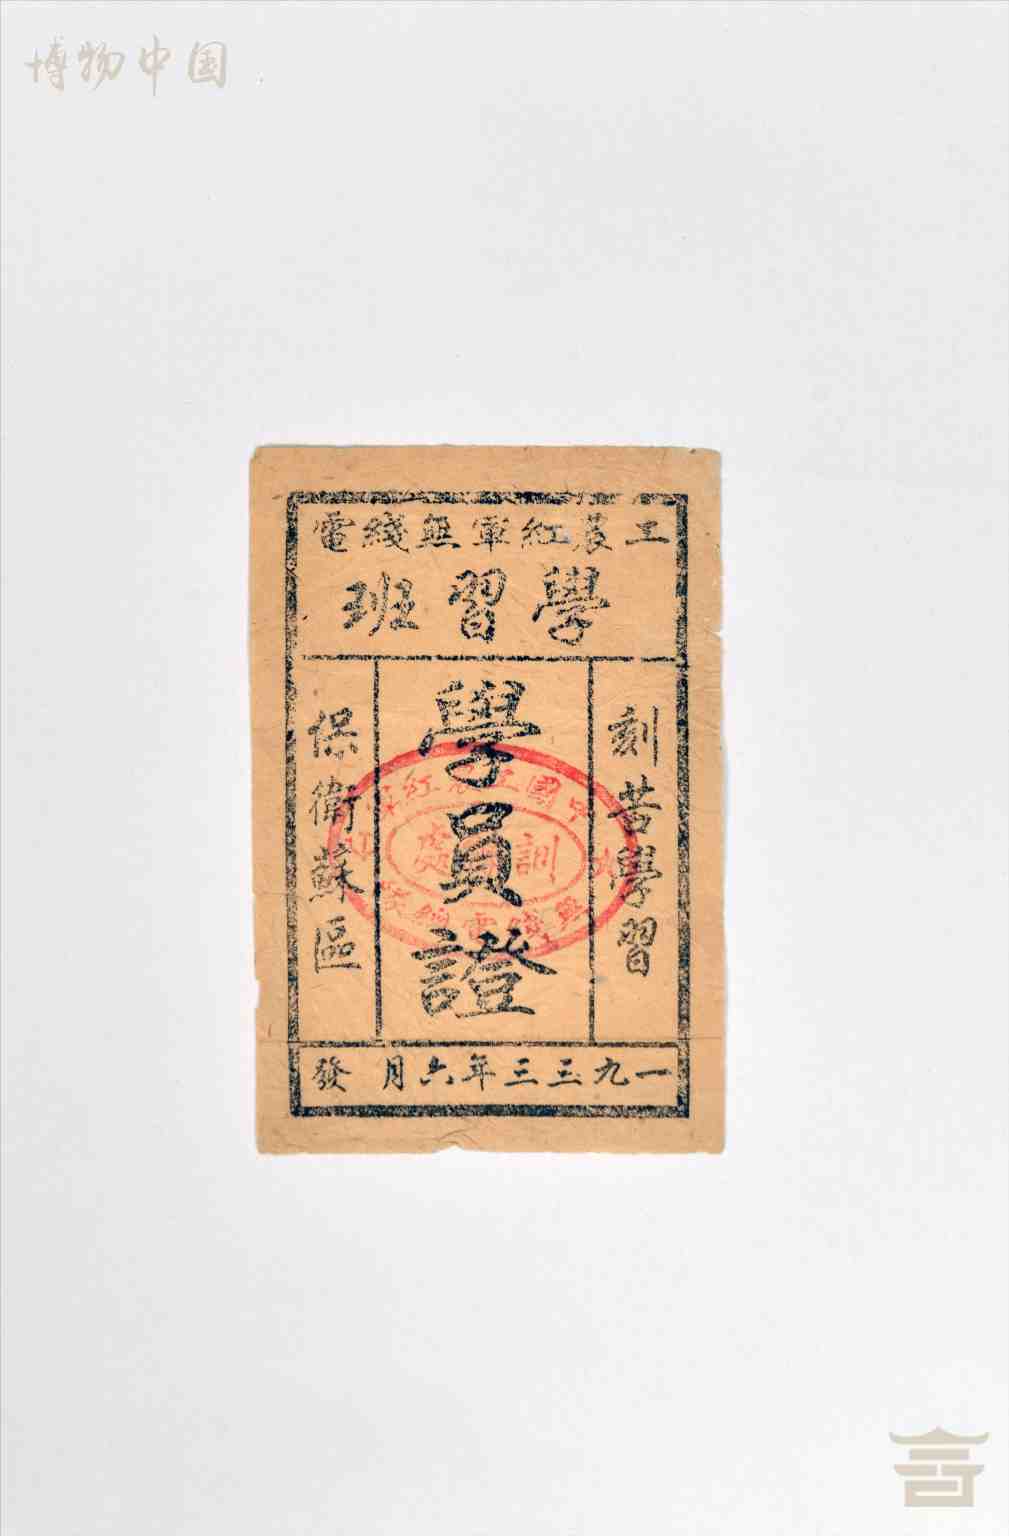 博物中国
工農紅軍無綫電
學習班
刻苦學習
學員證
保衛蘇區
一九三三年六月 發
中國工農紅軍
訓 處
無綫電總隊